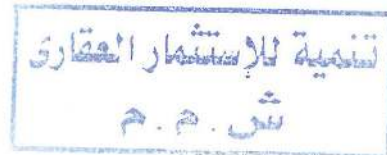 تنمية للإستثمار العقارى
ش . م . م